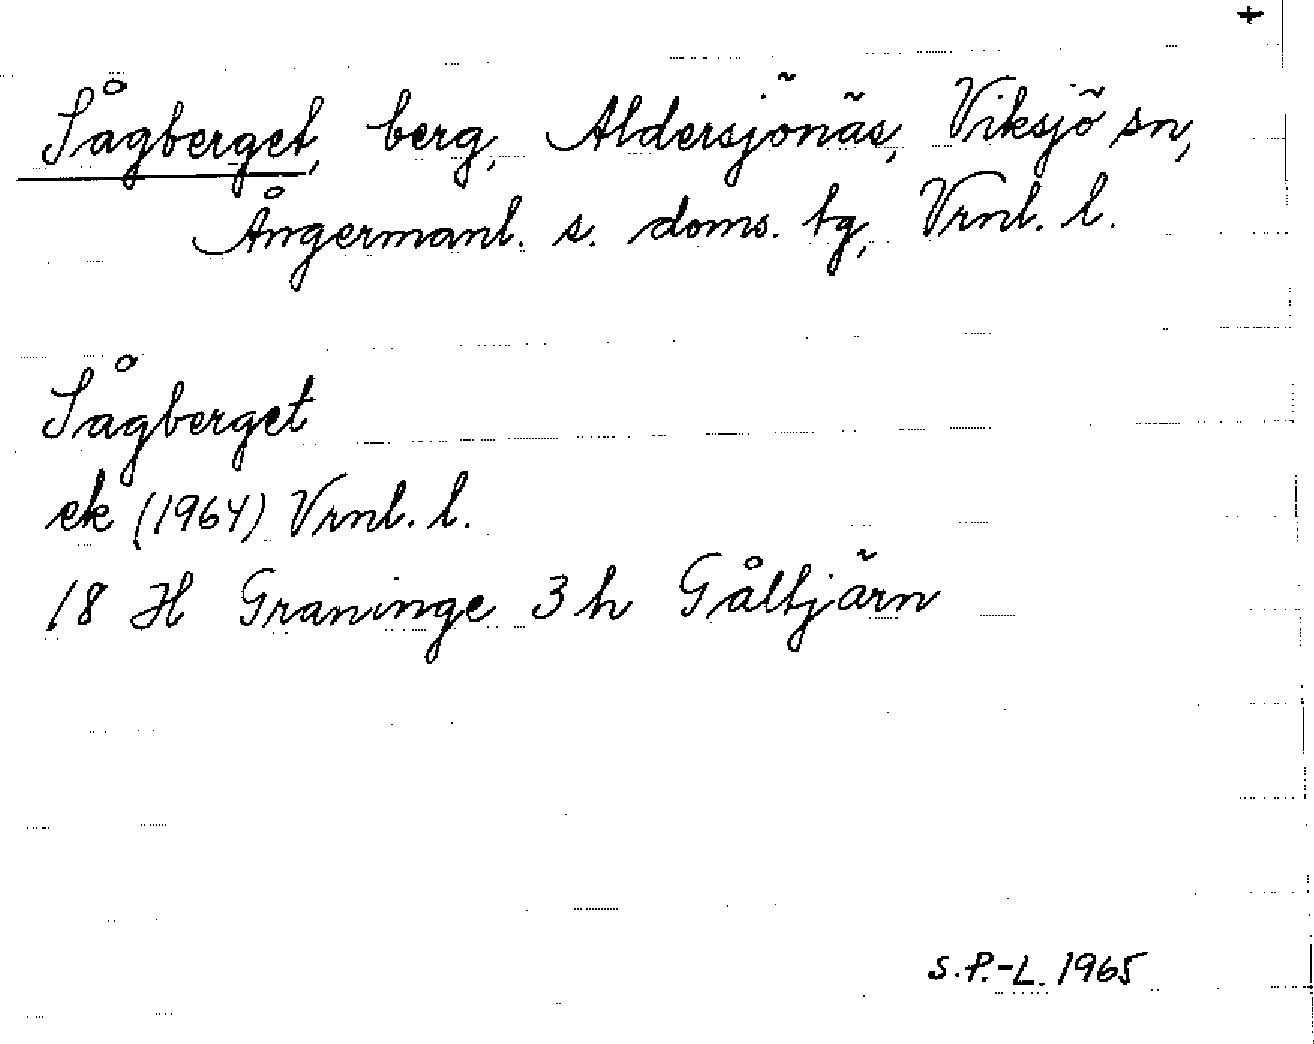 +
Sågberget, berg, Aldersjönäs, Viksjö sn,
Ångermanl. s. doms. tg, Vrnl. l.
Sågberget
ek (1964) Vrnl. l.
18 H Graninge 3 h Gåltjärn
S.P.-L. 1965